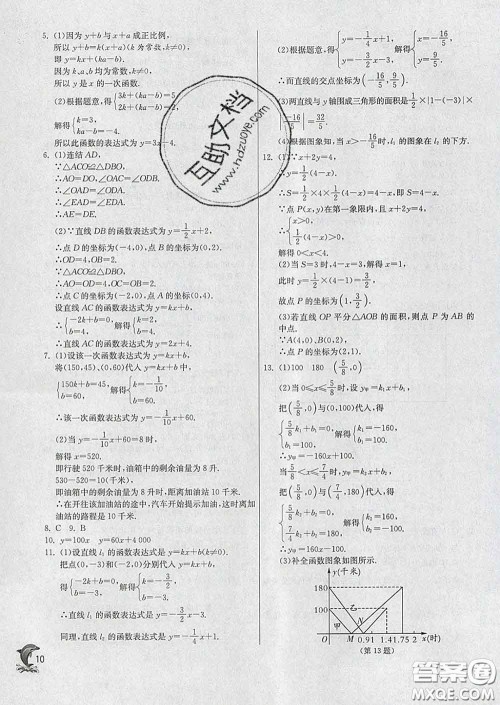 5. (1)因为 y+b 与 x+a 成正比例,
所以 y+b=k(x+a)(k 为常数,k≠0),
即 y=kx+(ka-b).
因为 k,a,b 均为常数,k≠0,
所以 y 是 x 的一次函数.
(2)根据题意,得{3k+(ka-b)=5, 2k+(ka-b)=2.
解得{k=3, ka-b=-4.
所以此函数的表达式为 y=3x-4.
6. (1)连结 AD,
∵△ACO≌△DBO,
∴AO=DO,
∴∠OAD=∠ODA.
∴∠EAD=∠EDA.
∴AE=DE.
(2)∵直线 DB 的函数表达式为 y=1/2x+2,
∴点 D 的坐标为(-4,0),点 B 的坐标为(0,2).
∴OD=4,OB=2.
∵△ACO≌△DBO,
∴AO=OD=4,OC=OB=2.
∴点 C 的坐标为(-2,0),点 A 的坐标为(0,4).
设直线 AC 的函数表达式为 y=kx+b,
∴{-2k+b=0, b=4. 解得{k=2, b=4.
∴直线 AC 的函数表达式为 y=2x+4.
7. (1)设该一次函数表达式为 y=kx+b,
将(150,45),(0,60)代入 y=kx+b,
得{150k+b=45, b=60. 解得{k=-1/10, b=60.
∴该一次函数表达式为 y=-1/10x+60.
(2)当 y=-1/10x+60=8 时,
解得 x=520.
即行驶 520 千米时,油箱中的剩余油量为 8 升.
530-520=10(千米),
即油箱中的剩余油量为 8 升时,距离加油站 10 千米.
∴在开往该加油站的途中,汽车开始提示加油,这时离加
油站的路程是 10 千米.
8. C 9. B
10. y=100x y=60x+4 000
11. (1)设直线 l₁ 的函数表达式是 y=kx+b,
把点(0,-3)和(-2,0)分别代入 y=kx+b,
得{-2k+b=0, b=-3. 解得{k=-3/2, b=-3.
∴直线 l₁ 的函数表达式为 y=-3/2x-3.
同理,直线 l₂ 的函数表达式为 y=-1/4x+1.
10
(2)根据题意,得{y=-1/4x+1, y=-3/2x-3. 解得{x=-16/5, y=9/5.
∴而直线的交点坐标为(-16/5,9/5).
(3)两直线与 y 轴围成三角形的面积是1/2×|1-(-3)|×
|-16/5|=32/5.
(4)根据图象知,当 x>-16/5时,l₁ 的图象在 l₂ 的下方.
12. (1)∵x+2y=4,
∴y=1/2(4-x).
∴S=1/2×3×1/2(4-x),即 S=3-3/4x.
∵点 P(x,y)在第一象限内,且 x+2y=4,
∴{x>0, 1/2(4-x)>0.
解得 0<x<4.
(2)当 S=3-3/4x 时,
此时 y=1/2(4-x)=3/2.
故点 P 的坐标为(1,3/2).
(3)若直线 OP 平分△AOB 的面积,则点 P 为 AB 的
中点.
∵A(4,0),B(0,2),
∴点 P 的坐标为(2,1).
13. (1)100 180 (5/8,0)
(2)当 0≤x≤5/8时,设 y甲=k₁x+b₁,
把(5/8,0)与(0,100)代入,得
{5/8k₁+b₁=0, b₁=100. 解得{k₁=-160, b₁=100.
∴y甲=-160x+100;
当5/8<x≤7/4时,设 y甲=k₂x+b₂,
把(5/8,0)与(7/4,180)代入,得
{5/8k₂+b₂=0, 7/4k₂+b₂=180. 解得{k₂=160, b₂=-100.
∴y甲=160x-100.
(3)补全函数图象如图所示.
y(千米)
180
100
甲 乙
O M N 0.91 1.41.75 2 x(时)
(第 13 题)
互助文档
www.hdzuoye.com
答案圈
MXQE.COM